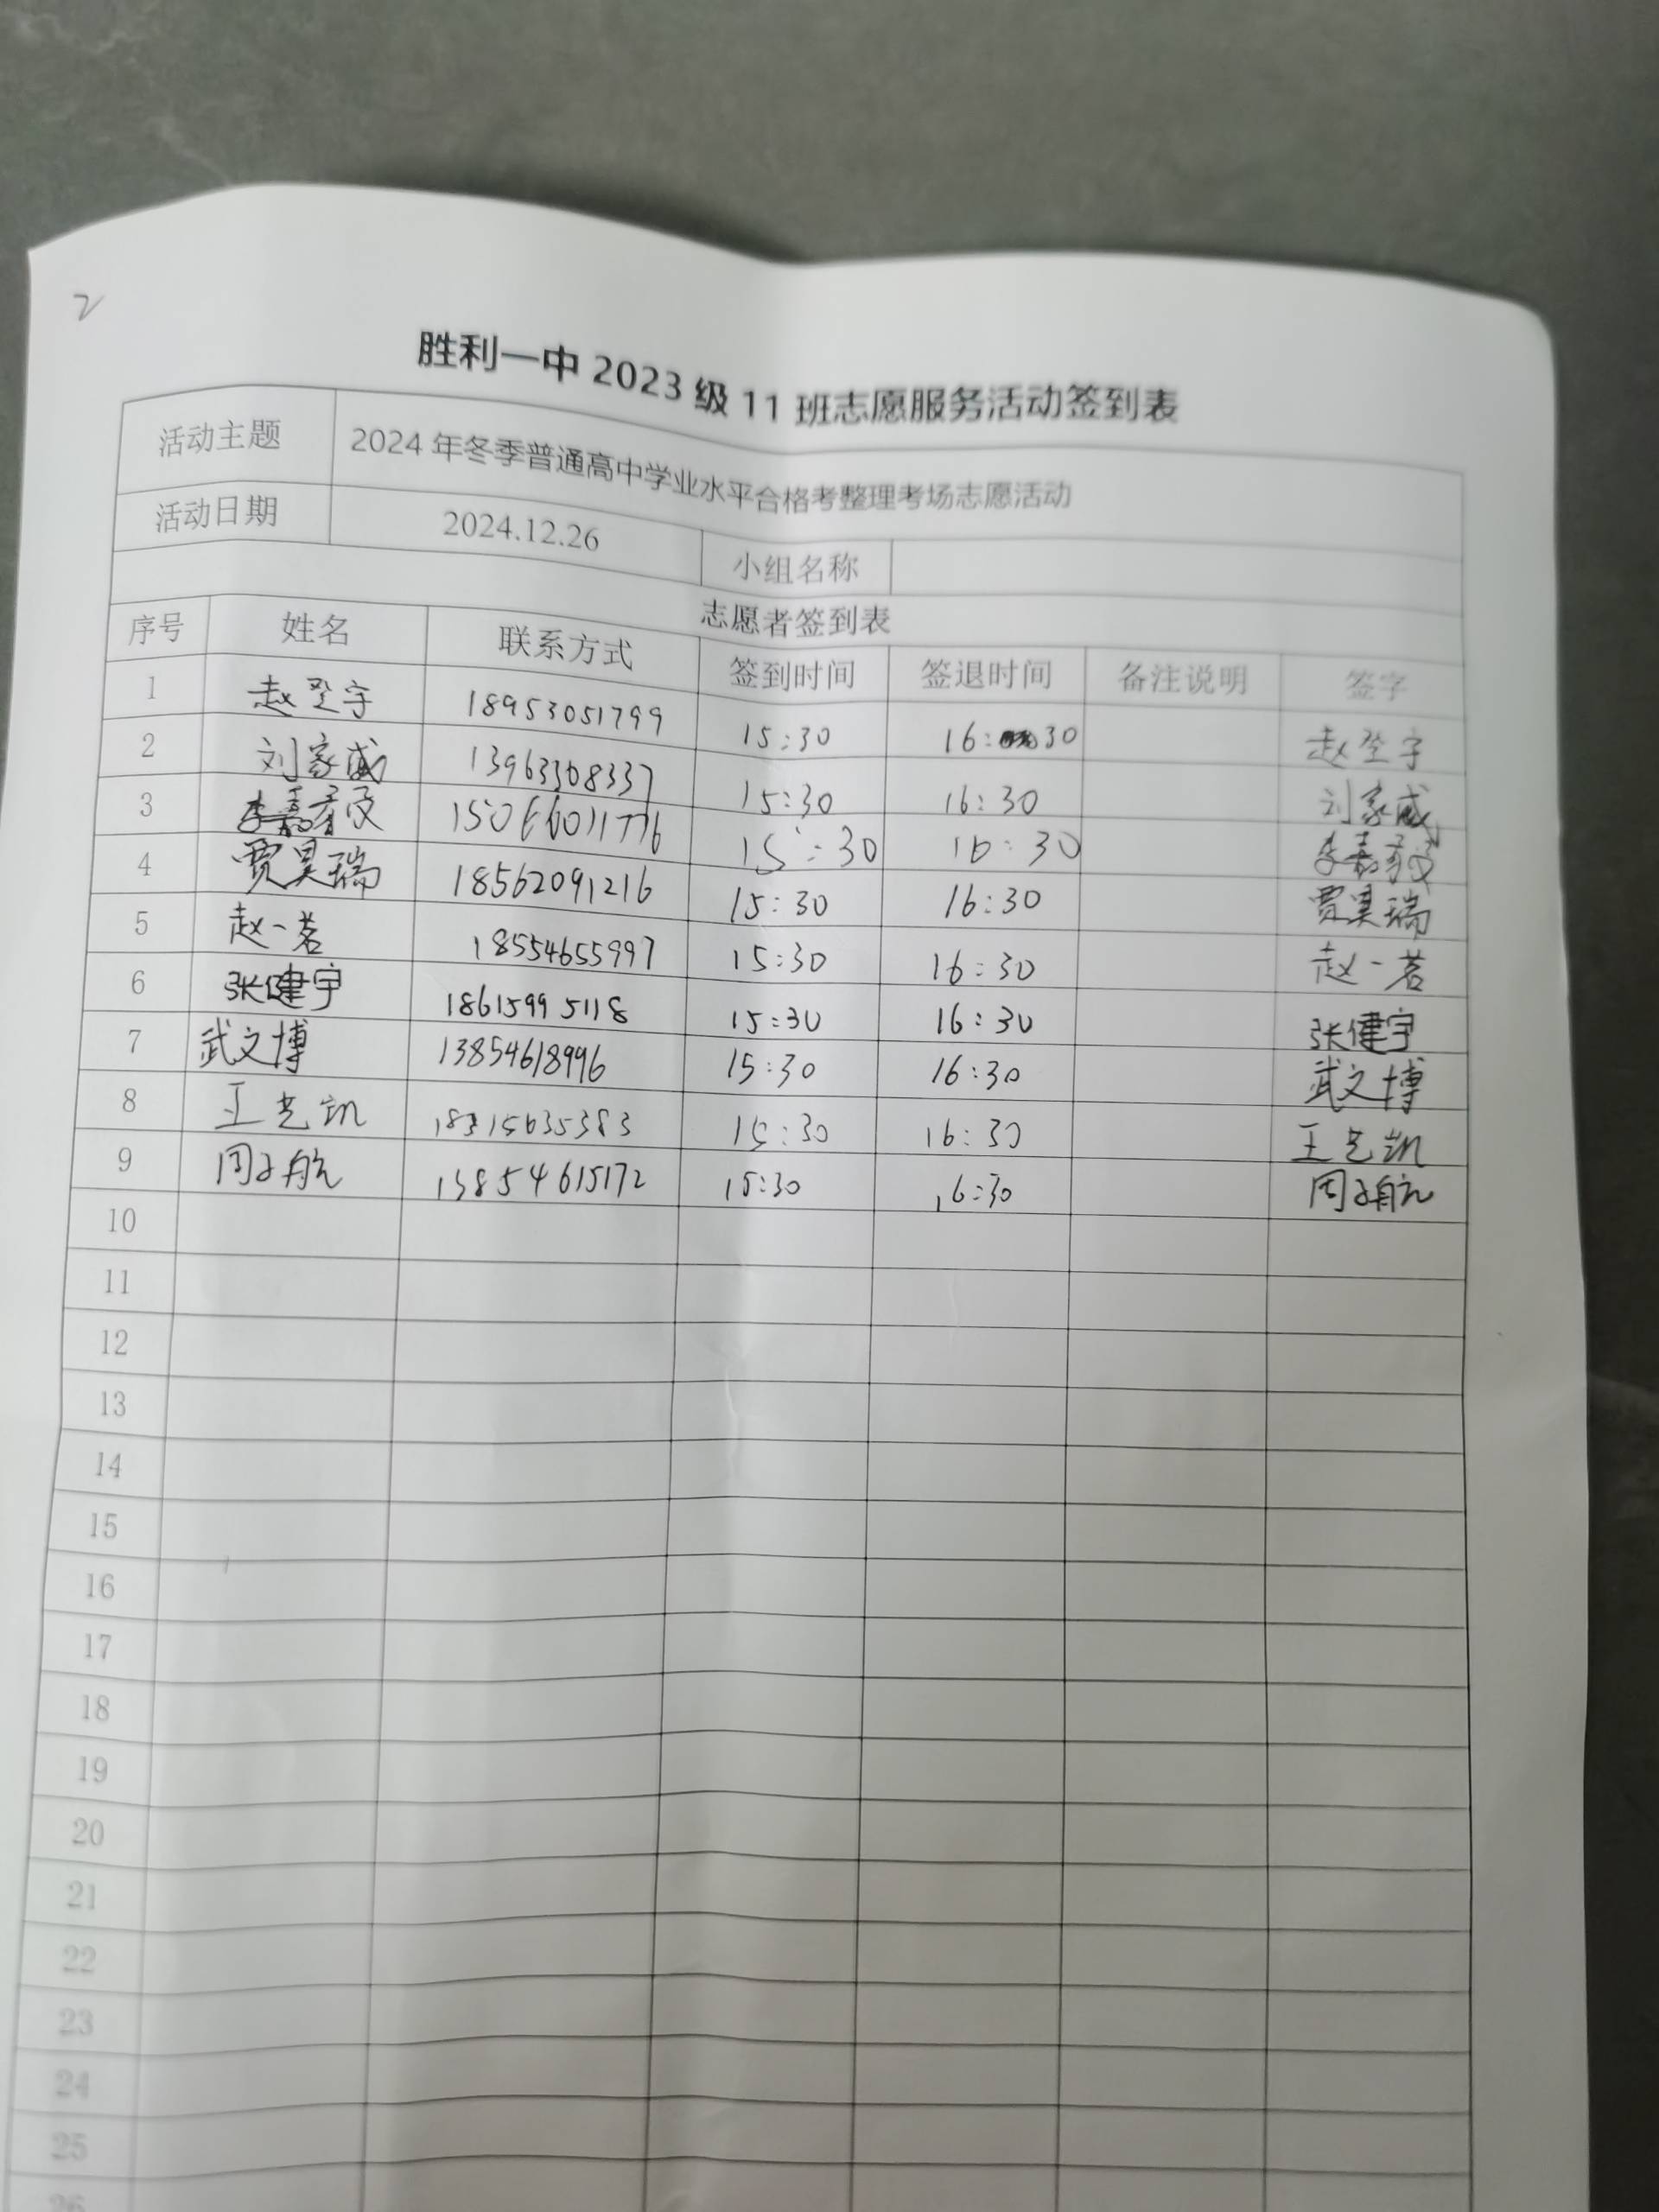 2
胜利一中 2023 级 11 班志愿服务活动签到表
活动主题 2024 年冬季普通高中学业水平合格考整理考场志愿活动
活动日期 2024.12.26 小组名称
志愿者签到表
序号 姓名 联系方式 签到时间 签退时间 备注说明 签字
1 赵堃宇 18953051799 15:30 16:30 赵堃宇
2 刘家威 13963308337 15:30 16:30 刘家威
3 李嘉 15066011776 15:30 16:30 李嘉
4 贾昊瑞 18562091216 15:30 16:30 贾昊瑞
5 赵一茗 18554655997 15:30 16:30 赵一茗
6 张健宇 18615995118 15:30 16:30 张健宇
7 武文博 13854618996 15:30 16:30 武文博
8 王艺凯 15:30 16:30 王艺凯
9 周子航 13854615172 15:30 16:30 周子航
10
11
12
13
14
15
16
17
18
19
20
21
22
23
24
25
26